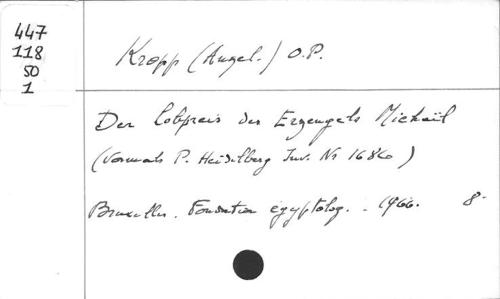 447
118
50
1
Kropp (Angel.) O.P.
Der Lobpreis des Erzengels Michaël
(Vormals P. Heidelberg Inv. Nr 1686)
Bruxelles. Fondation égyptolog. - 1966. 8-